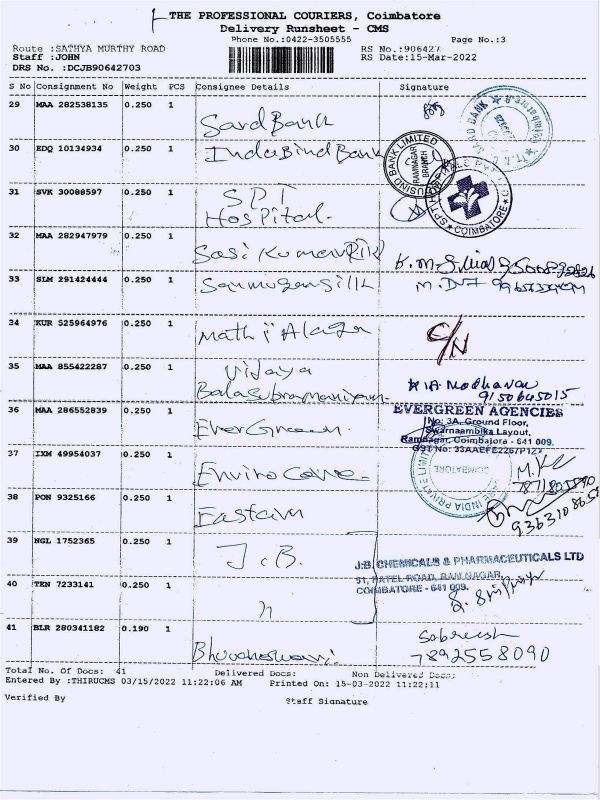 THE PROFESSIONAL COURIERS, Coimbatore
Delivery Runsheet - CMS
Phone No.:0422-3505555 Page No.:3
Route :SATHYA MURTHY ROAD RS No.:906427
Staff :JOHN RS Date:15-Mar-2022
DRS No. :DCJB90642703
S No Consignment No Weight PCS Consignee Details Signature
29 MAA 282538135 0.250 1
Sard Bank
30 EDQ 10134934 0.250 1 IndusBind Bank
INDUSIND BANK LIMITED
RAMNAGAR
BRANCH
31 SVK 30088597 0.250 1 SPT
Hospital.
COIMBATORE
32 MAA 282947979 0.250 1
Sasi Kumar
33 SLM 291424444 0.250 1 Sanmugan Silk
34 KUR 525964976 0.250 1
Mathi Alagan
C/N
35 MAA 855422287 0.250 1 Vijaya
Balasubramaniyam
Madhavan
9150645015
36 MAA 286552839 0.250 1 EverGreen
EVERGREEN AGENCIES
No: 3A, Ground Floor,
Swarnaambika Layout,
Ramnagar, Coimbatore - 641 009.
GST No: 33AAEFE2267P1Z7
37 IXM 49954037 0.250 1
Enviro Care
INDIA PRIVATE LIMITED
COIMBATORE
38 PON 9325166 0.250 1
Eastern
39 NGL 1752365 0.250 1
J.B.
J.B. CHEMICALS & PHARMACEUTICALS LTD
91, PATEL ROAD, RAM NAGAR,
COIMBATORE - 641 009.
40 TEN 7233141 0.250 1
41 BLR 280341182 0.190 1
Bhuvaneswari
Sabreesh
7892558090
Total No. Of Docs: 41 Delivered Docs: Non Delivered Docs:
Entered By :THIRUCMS 03/15/2022 11:22:06 AM Printed On: 15-03-2022 11:22:11
Verified By Staff Signature